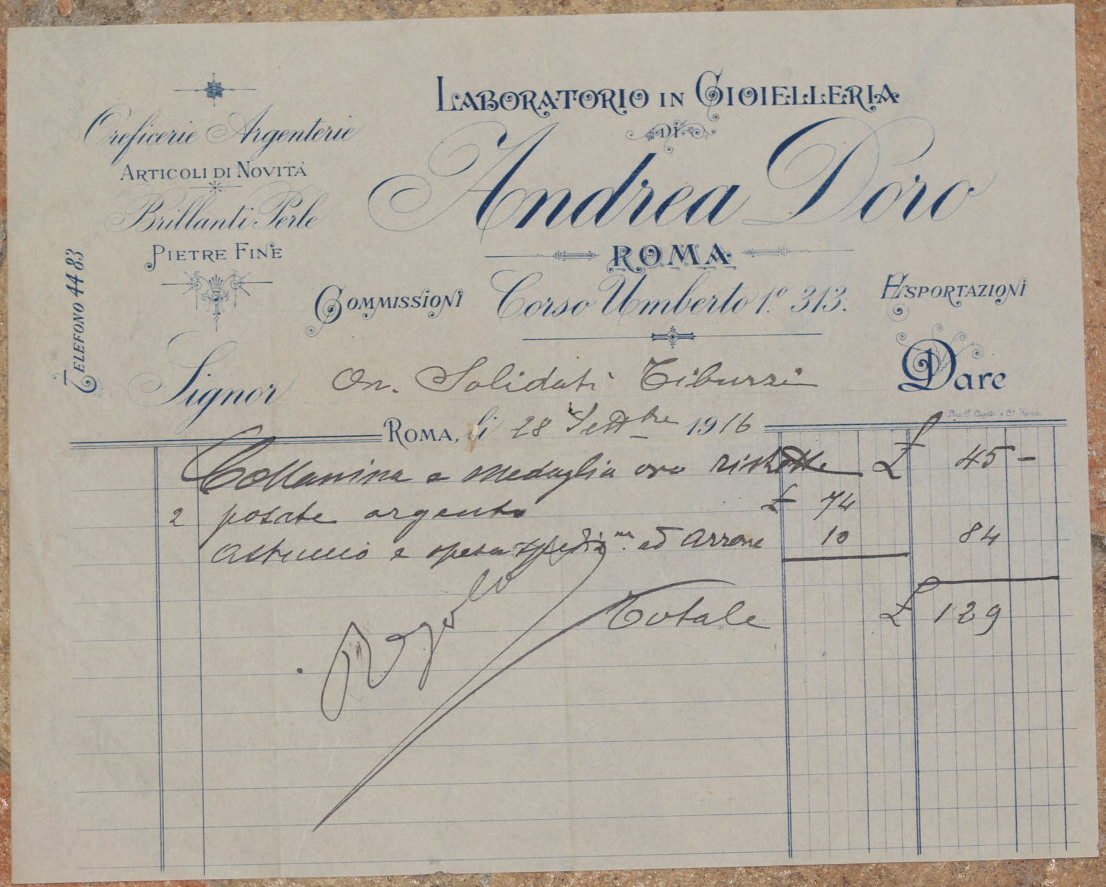 Oreficerie Argenterie
ARTICOLI DI NOVITÀ
Brillanti Perle
PIETRE FINE
TELEFONO 44 83
LABORATORIO IN GIOIELLERIA
DI
Andrea Doro
ROMA
COMMISSIONI Corso Umberto 1º 313. ESPORTAZIONI
Signor On. Solidati Tiburzi Dare
ROMA, li 28 Settbre 1916
Collanina e medaglia oro £ 45 -
2 posate argento £ 74
astuccio e spesa ad Arrone 10 84
Totale £ 129